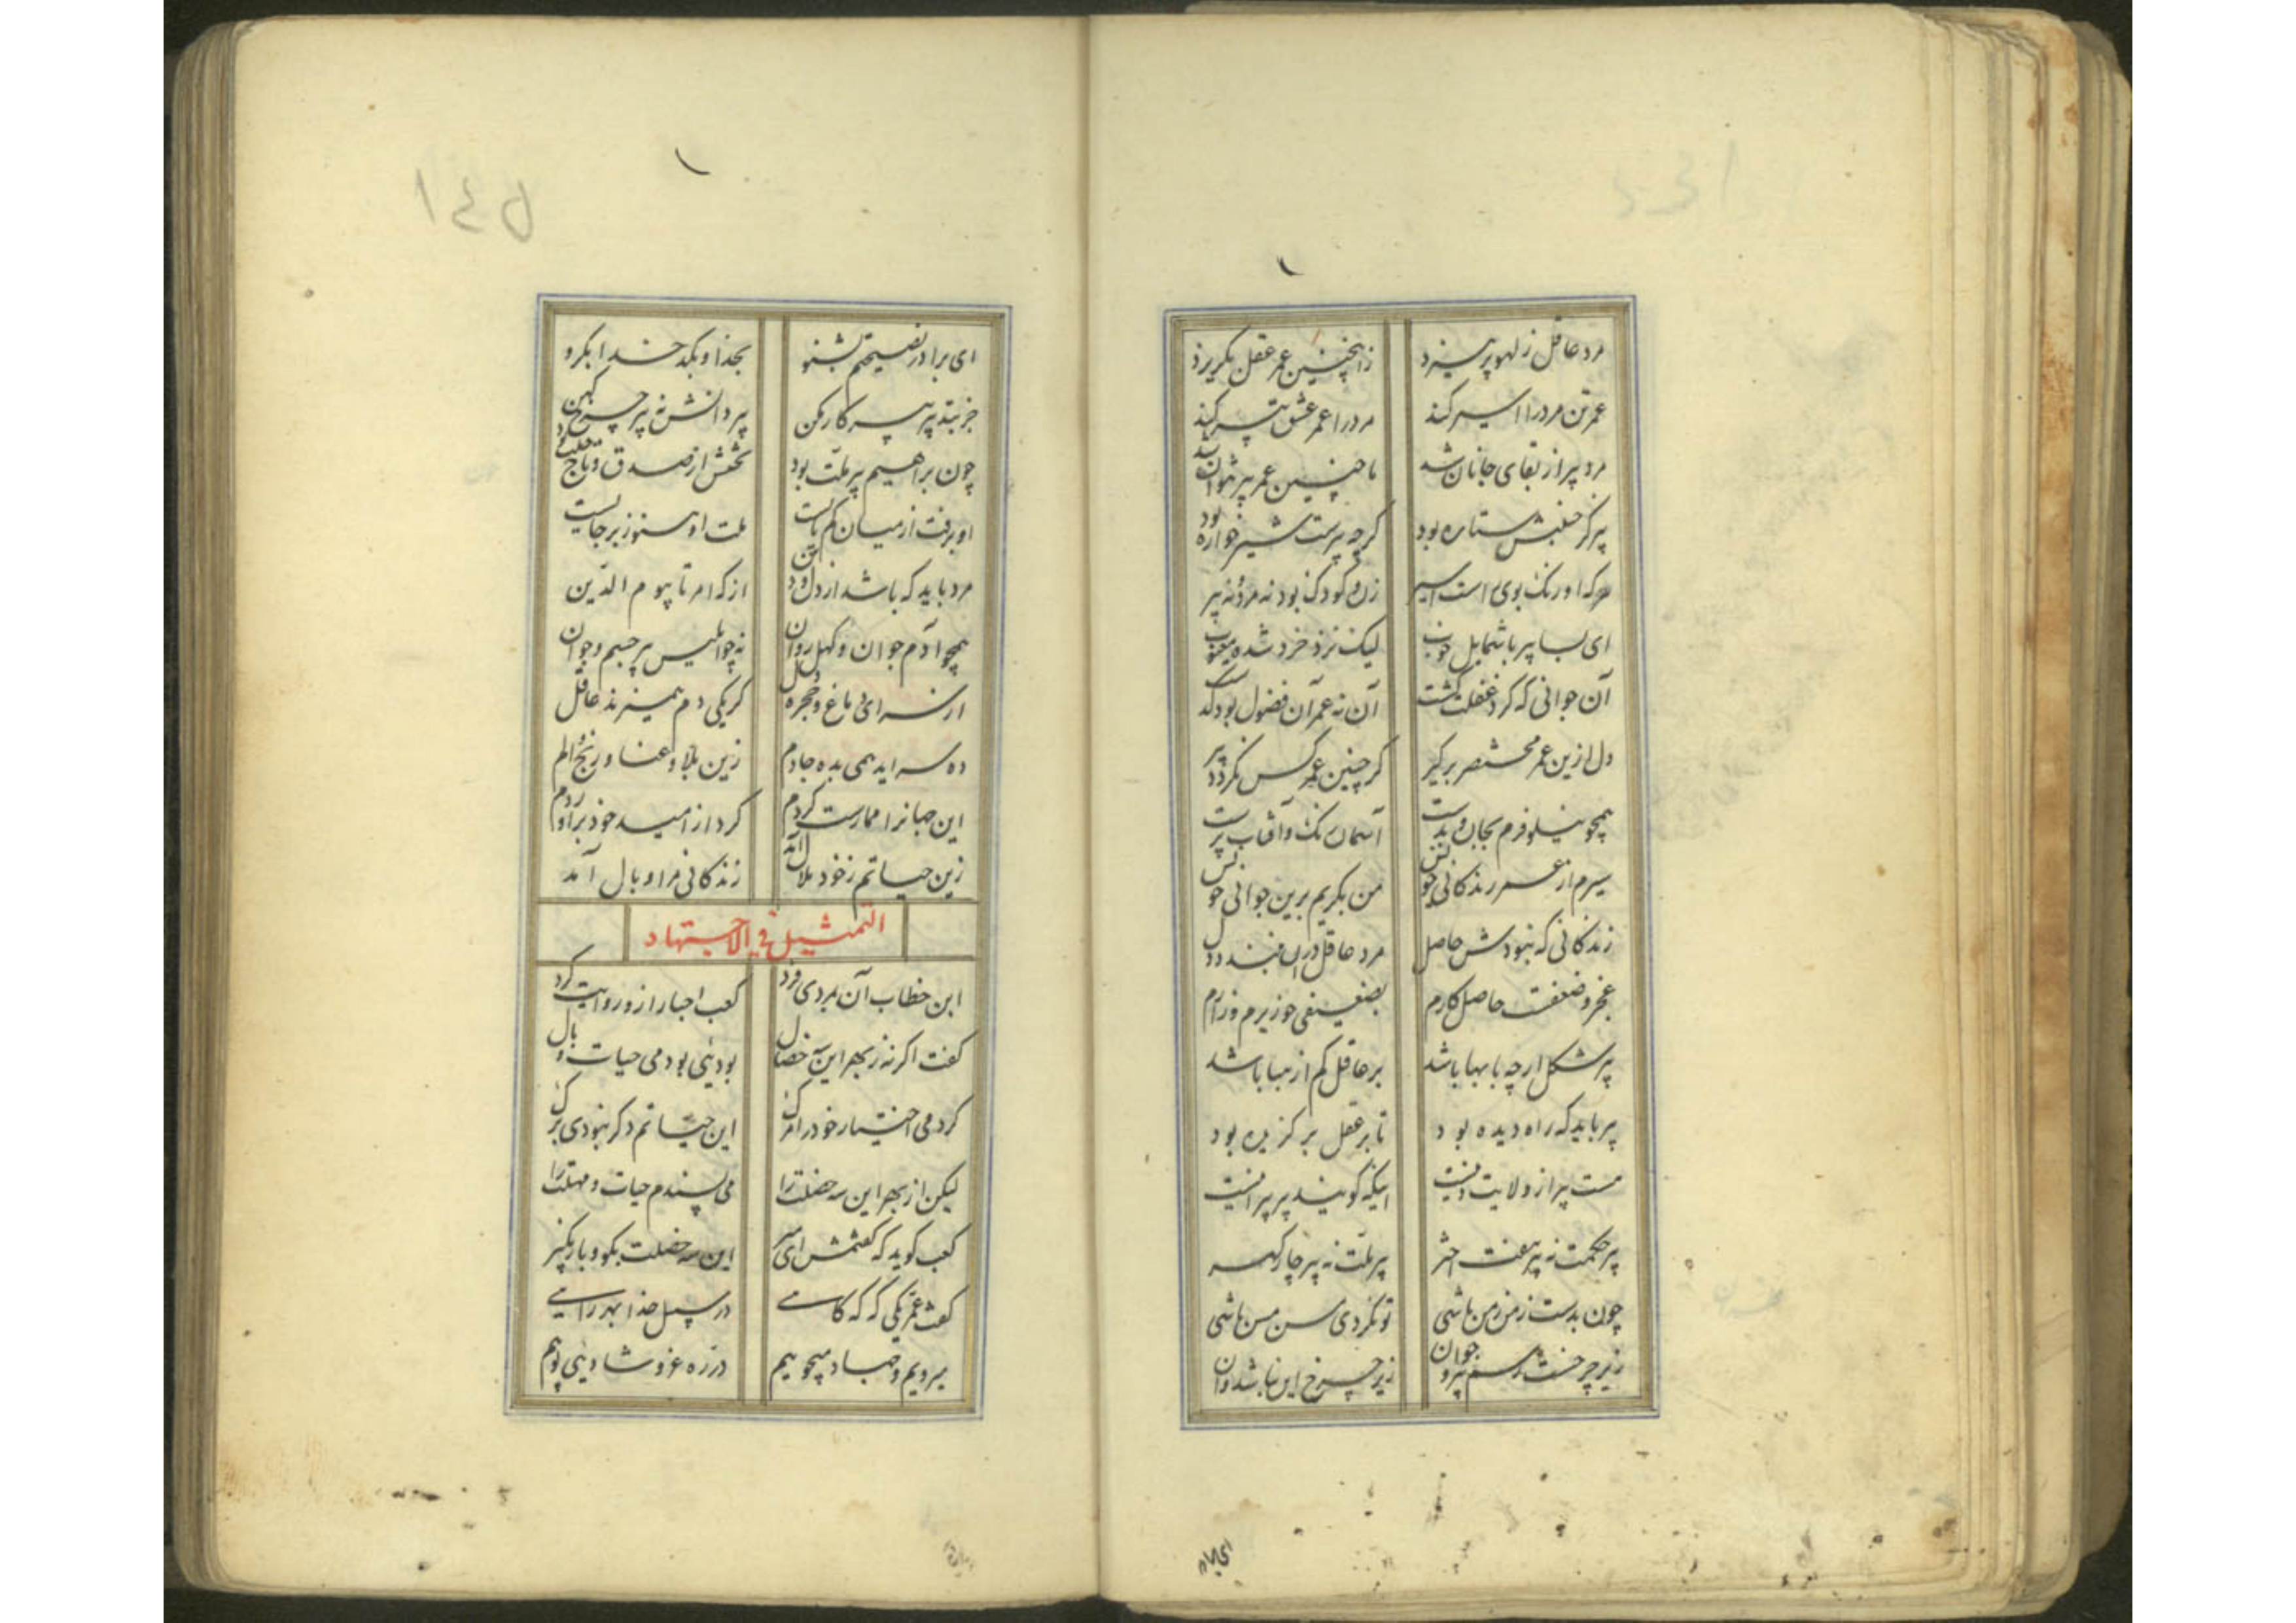 مرد عاقل ز لهو پرهیزد زانچنین عمر عقل بگریزد
عمر تن مرد را اسیر کند مرد را عمر عشق پیر کند
مرد پیر از بقای جانان شد با چنین عمر پیر نتوان شد
پیر کز جنبش ستاره بود گرچه پیرست شیرخواره بود
هرکه او رنک بوی است اسیر زن و کودک بود نه مرد نه پیر
ای بسا پیر با شمایل خوب لیک نزد خرد شده معیوب
آن جوانی که کرد غفلت کشت آن نه عمر آن فضول بود گذشت
دل ازین عمر مختصر برگیر گر چنین عمر کس نگردد پیر
همچو نیلوفرم بجان و بدست آسمان رنگ و آفتاب پرست
سیرم از عمر و زندگانی خویش من بگریم برین جوانی خویش
زندگانی که نبودش حاصل مرد عاقل در آن نبندد دل
عجز و ضعفت حاصل کارم بضعیفی چو زیرم و زارم
پیر شکل ارچه با بها باشد بر عاقل کم از هبا باشد
پیر باید که راه دیده بود تا بر عقل برگزیده بود
هست پیر از ولایت دینست اینکه گویند پیر پیر اینست
پیر حکمت نه پیر هفت اختر پیر ملت نه پیر چار گهر
چون بدست زمن زمن باشی تو نکردی مسن مسن باشی
زیر چرخست رسم پیر و جوان زبر چرخ این نباشد و آن
ای برادر
ای برادر نصیحتم بشنو بخدا و بکد خدا بگرو
جز بتدبیر پیر کار مکن پیر دانش نه پیر چرخ کهن
چون براهیم پیر ملت بود تختش از صدق و تاج خلت بود
او برفت از میان کم و کاست ملت او هنوز بر جاست
مرد باید که باشد از دل و دین از که امر تا بیوم الدین
همچو آدم جوان و کهل روان نه چو ابلیس پیر جسم و جوان
از سرای و باغ و حجره و دل گر یکی دم همیزند عاقل
ده سراید همی بده جا دم زین بلا و عنا و رنج و الم
این جهانرا عمارت کردم گرد از امید خود برآوردم
زین حیاتم ز خود ملال آمد زندگانی مرا وبال آمد
التمثیل فی الاجتهاد
ابن خطاب آن بمردی فرد کعب احبار ازو روایت کرد
گفت اگر نه ز بهر این سه خصال بودنی بودمی حیات وبال
کردمی اختیار خود را مرگ این حیاتم دگر نبودی برگ
لیکن از بهر این سه خصلت را می پسندم حیات و مهلت را
کعب گوید که گفتمش ای میر این سه خصلت بگو و باز مگیر
گفت عمر یکی که گه گاهی در سبیل خدا بهر راهی
میرویم و جهاد میجوییم در ره غزو شاد می پوییم